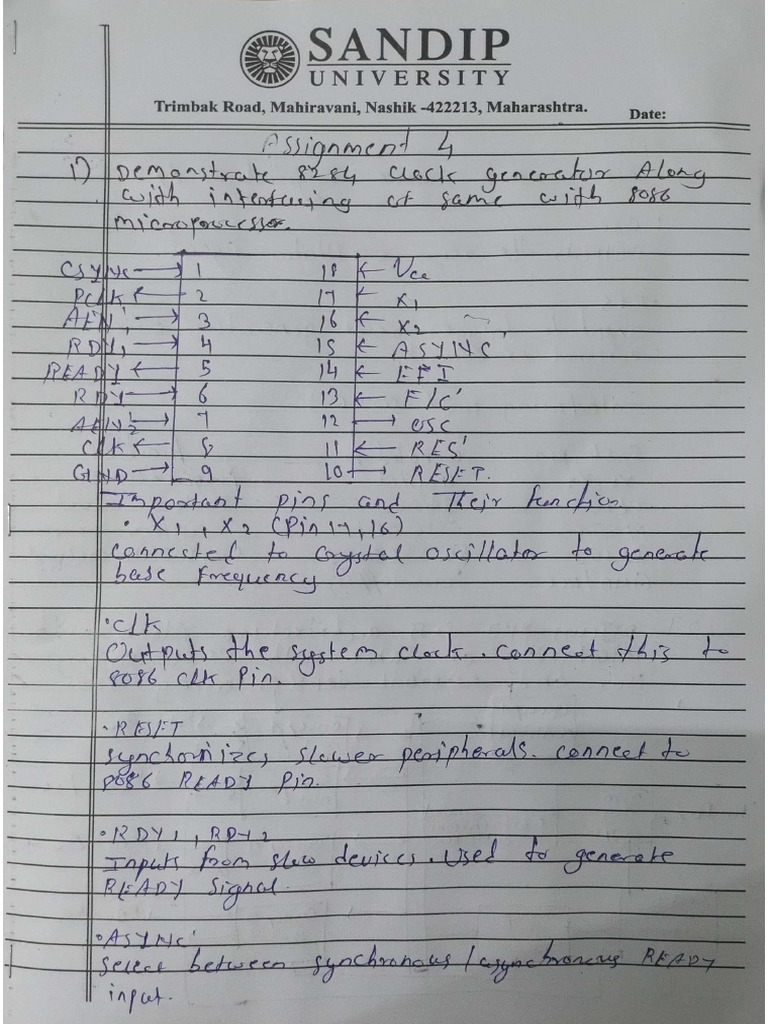 SANDIP
UNIVERSITY
Trimbak Road, Mahiravani, Nashik -422213, Maharashtra.
Date:
Assignment 4
1) Demonstrate 8284 clock generator Along
with interfacing of same with 8086
microprocessor.
CSYNC → 1 18 ← Vcc
PCLK ← 2 17 ← X1
AEN1' → 3 16 ← X2
RDY1 → 4 15 ← ASYNC'
READY ← 5 14 ← EFI
RDY → 6 13 ← F/C'
AEN2' → 7 12 → OSC
CLK ← 8 11 ← RES'
GND → 9 10 → RESET.
Important pins and Their function
• X1, X2 (Pin 17, 16)
connected to Crystal oscillator to generate
base Frequency
• Clk
Outputs the system clock. connect this to
8086 CLK Pin.
• RESET
synchornizes slower peripherals. connect to
8086 READY Pin.
• RDY1, RDY2
Inputs from slow devices. Used to generate
READY Signal.
• ASYNC'
Select between synchronous/asynchronous READY
input.